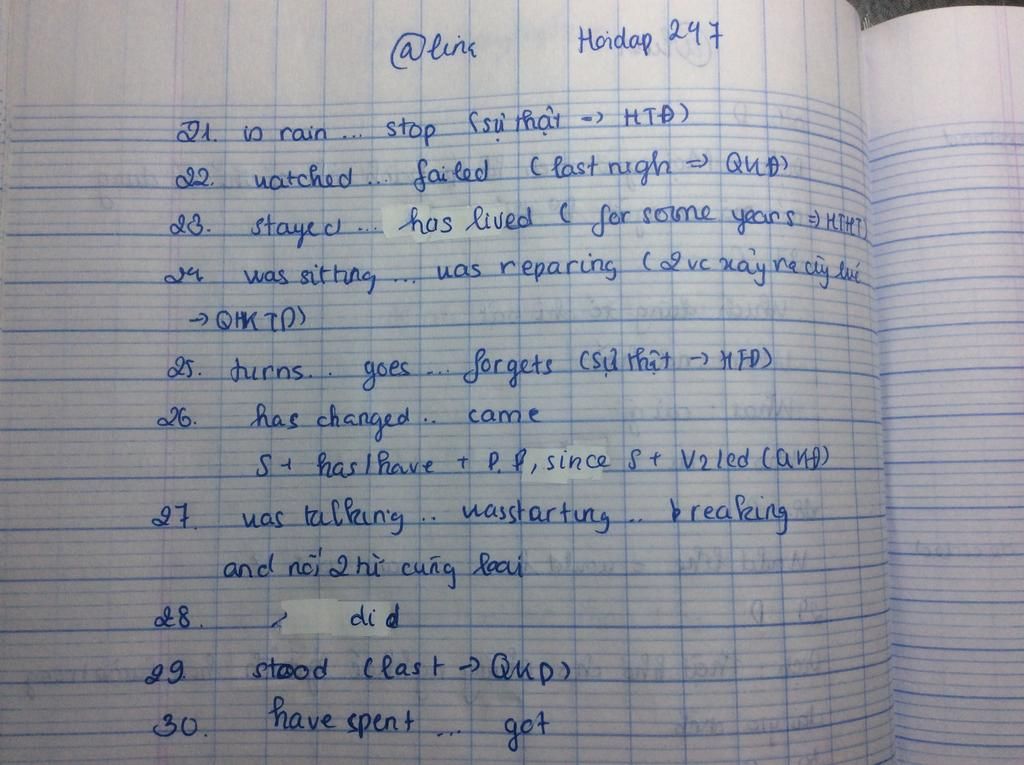 @link Hoidap 247
21. is rain ... stop (sự thật => HTĐ)
22. watched ... failed (last nigh => QKĐ)
23. stayed ... has lived ( for some years => HTHT)
24 was sitting ... was reparing (2 vc xảy ra cùng lúc
-> QHKTD)
25. turns.. goes ... forgets (sự thật -> HTĐ)
26. has changed .. came
S + has/have + P.P, since S + V2/ed (QKĐ)
27. was talking .. was starting .. breaking
and nối 2 từ cùng loại
28. did
29. stood (last -> QKD)
30. have spent ... got